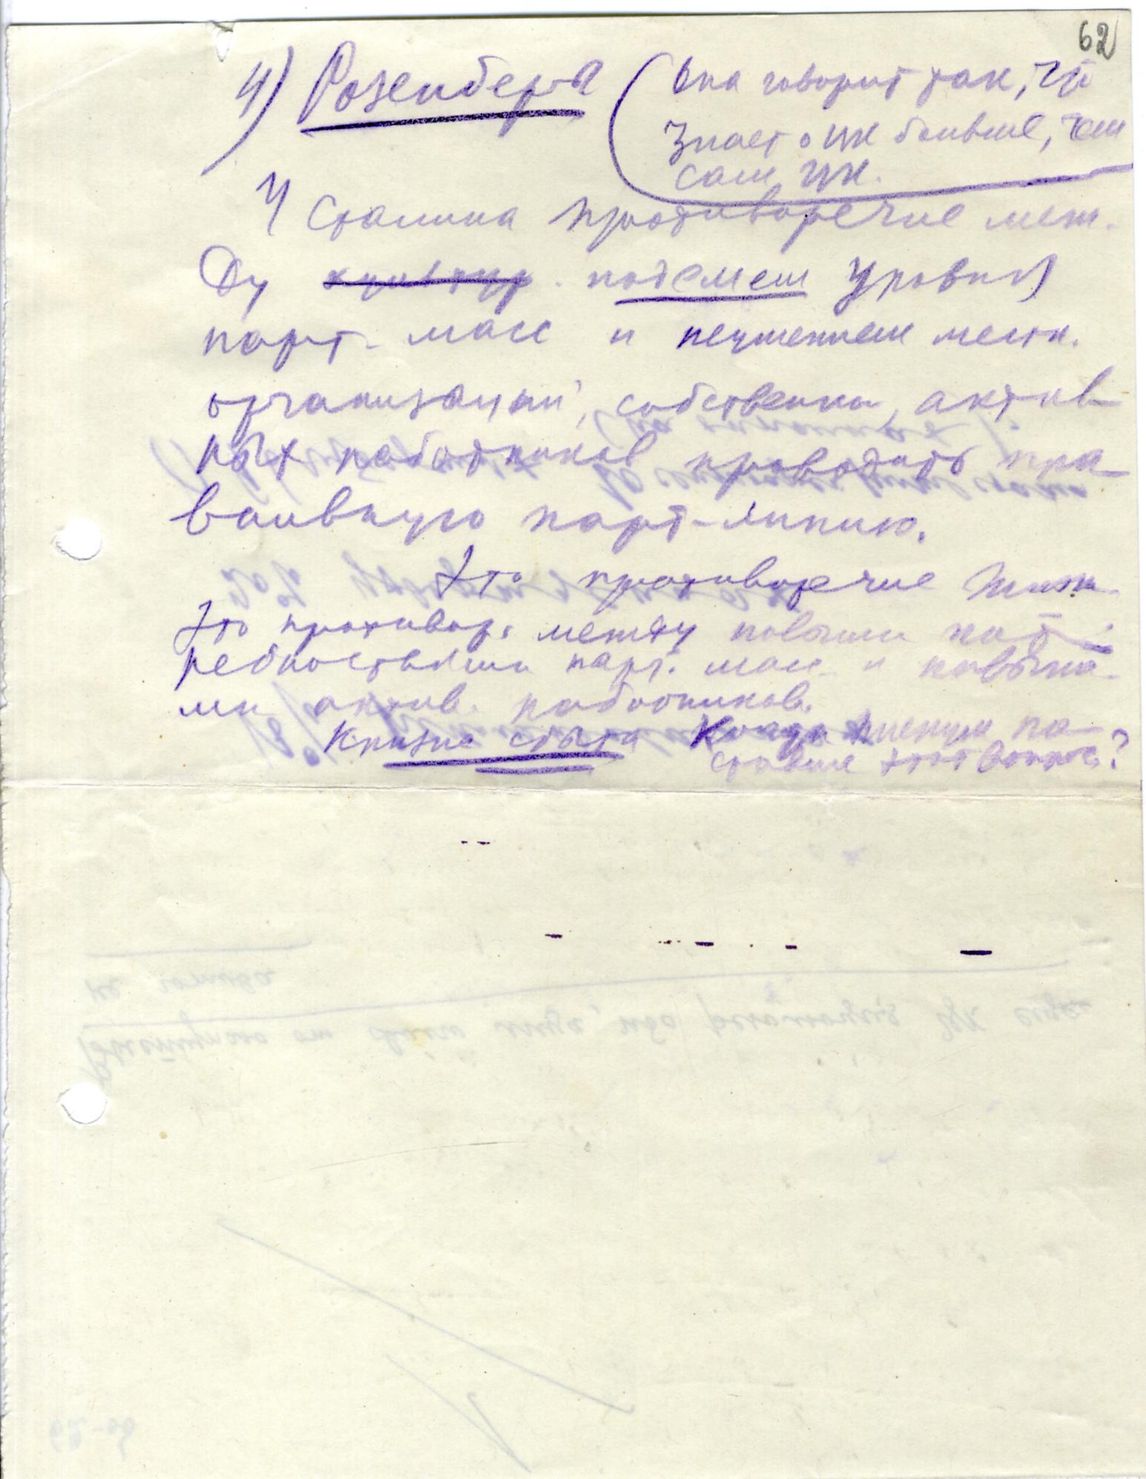 62
4) Розенберг
(Она говорит так, что
знает о ЦК больше, чем
сам ЦК.
У Сталина противоречие меж-
ду культур. подъемом уровня
парт. масс и неумением местн.
организаций, собственно, актив-
ных работников проводить пра-
вильную парт-линию.
Это противоречие
Это противор. между новыми пот-
ребностями парт. масс и
ми актив. работников.
Кризис сбыта Когда Ленин по-
ставил этот вопрос?